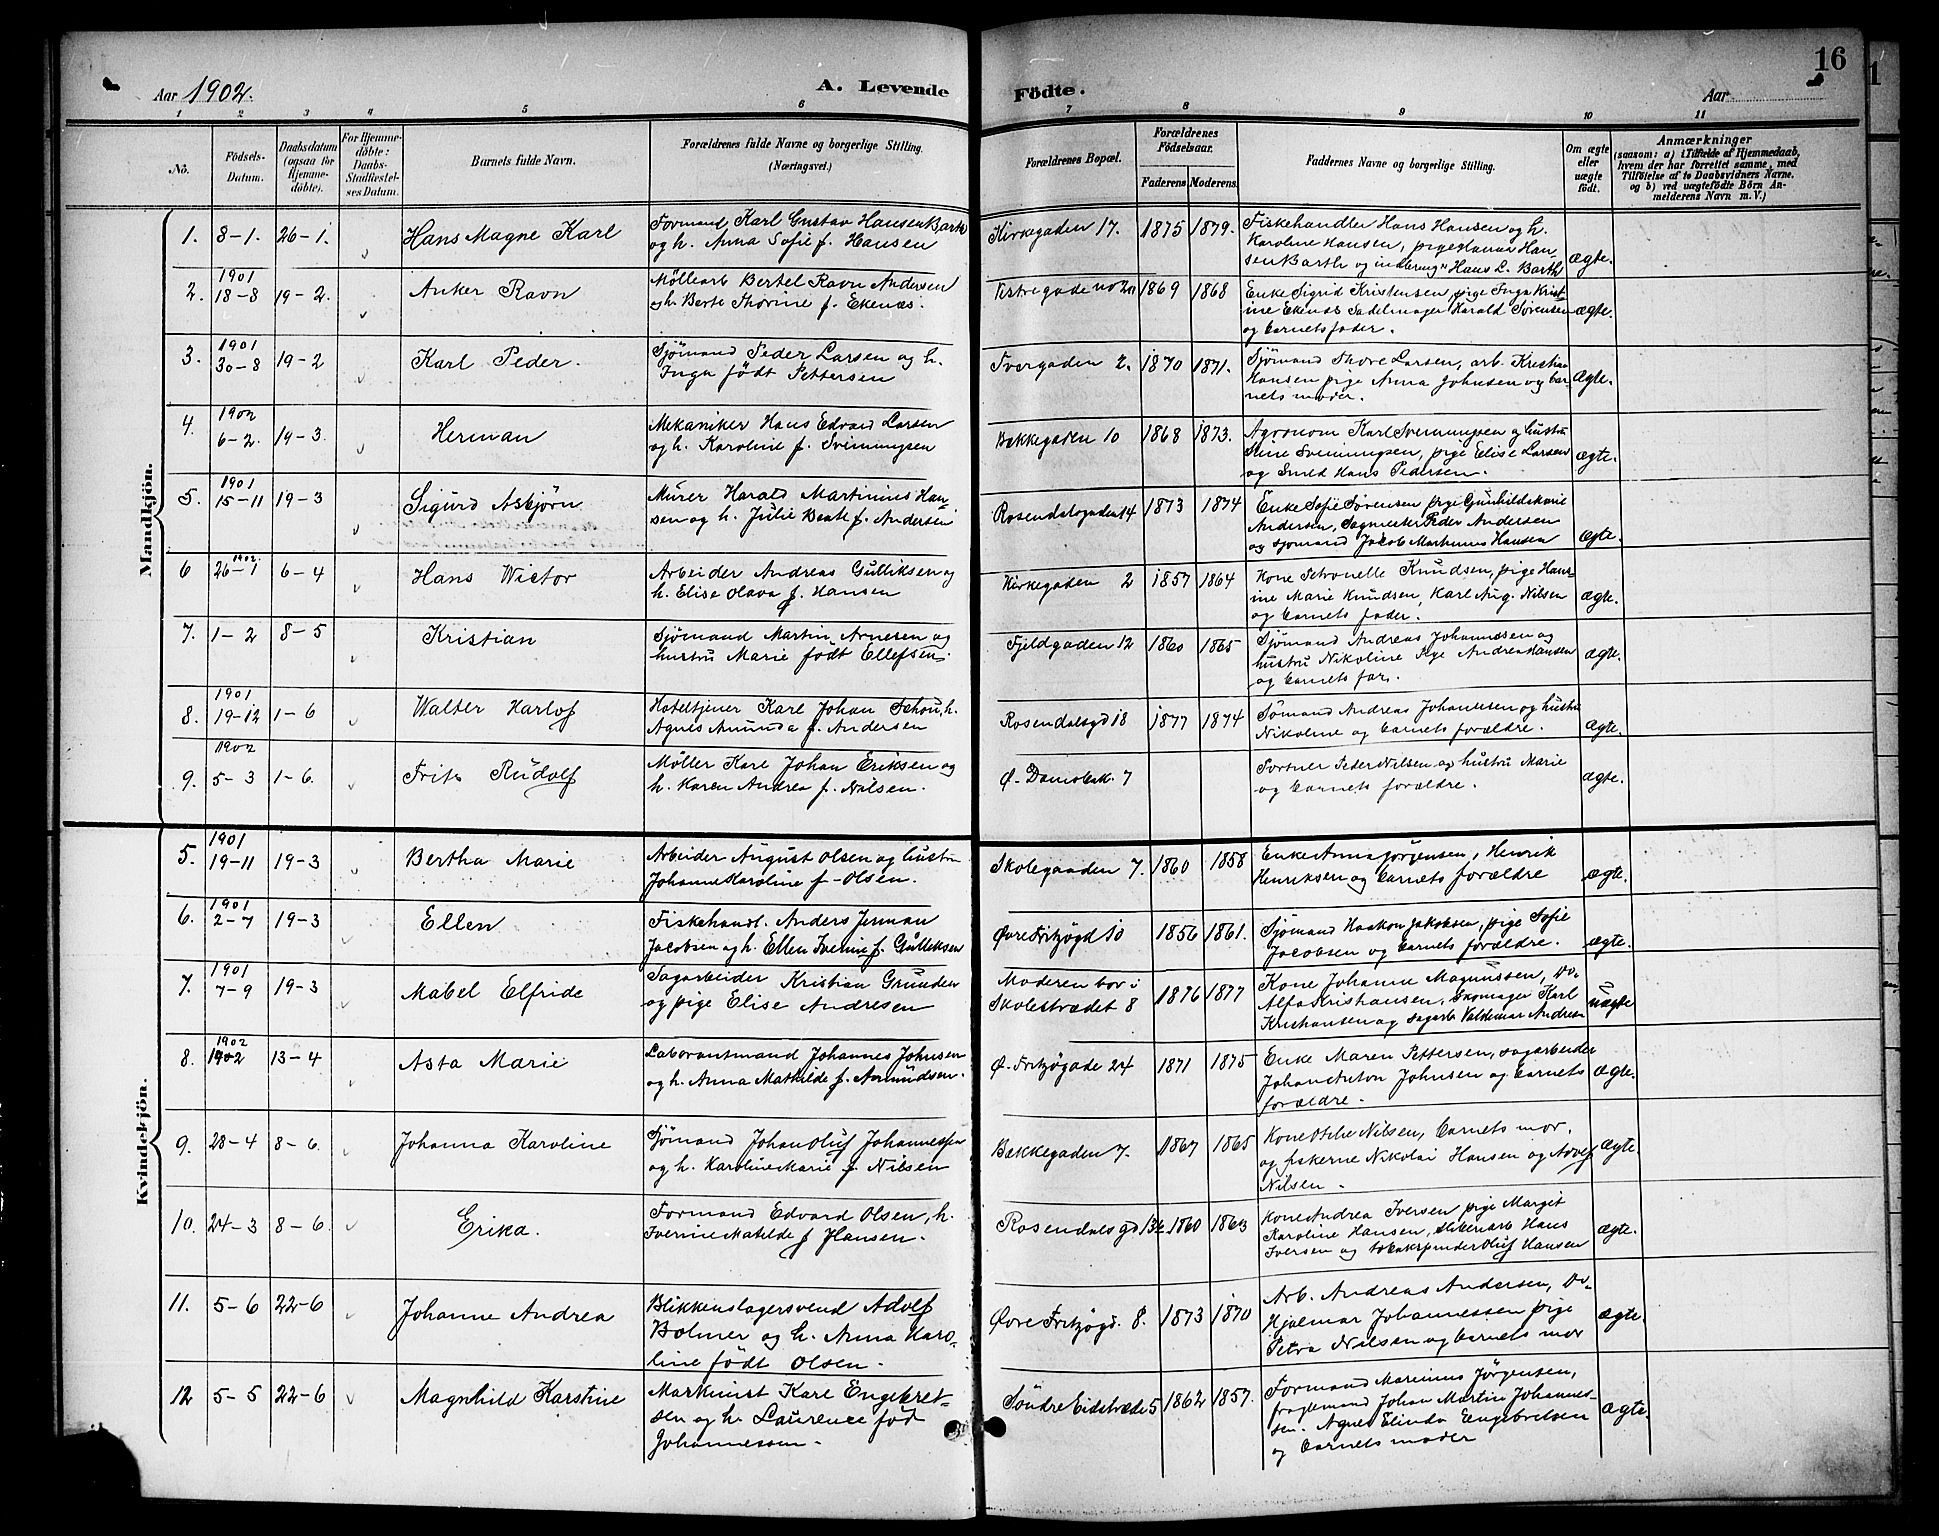 16
Aar 1902.
A. Levende Födte.
Aar
1 2 3 4 5 6 7 8 9 10 11
No.
Födsels-Datum.
Daabsdatum (ogsaa for Hjemme-döbte).
For Hjemme-döbte: Daabs-Stadfæstel-ses Datum.
Barnets fulde Navn.
Forældrenes fulde Navne og borgerlige Stilling.
(Næringsvei.)
Forældrenes Bopæl.
Forældrenes Födselsaar.
Faderens Moderens.
Faddernes Navne og borgerlige Stilling.
Om ægte eller uægte födt.
Anmærkninger
(saasom: a) i Tilfælde af Hjemmedaab,
hvem der har forrettet samme, med
Tilföielse af to Daabsvidners Navne,
og b) ved uægtefödte Börn An-
melderens Navn m. V.)
Mandkjön.
1. 8-1. 26-1. Hans Magne Karl
Formand Karl Gustav Hansen Barth
og h. Anna Sofie f. Hansen
Kirkegaden 17. 1875 1879.
Fiskehandler Hans Hansen og h.
Karoline Hansen, pige Hanna Han
sen Barth og Hans L. Barth
ægte.
2. 1901 18-8 19-2. Anker Ravn
Møllearb Bertel Ravn Andersen
og h. Berte Thorine f. Ekenæs.
1869 1868
Enke Sigrid Kristensen, pige Inga Krist
ine Ekenæs Sadelmager Harald Sørensen
og barnets fader.
ægte.
3. 1901 30-8 19-2 Karl Peder.
Sjömand Peder Larsen og h.
Inga född Pettersen
Tvergaden 2. 1870 1871.
Sjömand Thore Larsen, arb. Kristian
Hansen pige Anna Johnsen og bar
nets moder.
Ægte.
4. 1902 6-2. 19-3. Herman
Mekaniker Hans Edvard Larsen
og h. Karoline f. Svenningsen
Bakkegaden 10 1868 1873.
Agronom Karl Svenningsen og hustru
Svenningsen, pige Elise Larsen
og Smed Hans Pedersen.
ægte.
5. 1901 15-11 19-3 Sigurd Asbjørn
Murer Harald Martinius Han
sen og h. Julie Beate f. Andersen
Rosendalsgaden 14 1873 1874
Enke Sofie Sørensen pige Gunhildskarie
Andersen, Sagmester Peder Andersen
og sjømand Jacob Markinus Hansen
ægte.
6 1902 26-1 6-4 Hans Wictor
Arbeider Andreas Gulliksen og
h. Elise Olava f. Hansen
Kirkegaden 2 1857 1864
Kone Petronelle Knudsen, pige Hans-
ine Marie Knudsen, Karl Aug. Nilsen
og barnets fader.
ægte.
7. 1-2 8-5 Kristian
Sjømand Martin Arnesen og
hustru Marie født Ellefsen.
Fjeldgaden 12 1860 1865
Sjømand Andreas Johannesen og
hustru Nikoline Pige Andrea Hansen
og barnets far.
ægte.
8. 1901 19-12 1-6 Walter Harlof
Hoteltjener Karl Johan Schou, h.
Agnes Amunda f. Andersen
Rosendalsgd 18 1877 1874
Sømand Andreas Johannesen og hustru
Nikoline og barnets forældre.
ægte.
9. 1902 5-3 1-6. Frits Rudolf
Møller Karl Johan Eriksen og
h. Karen Andrea f. Nilsen.
Ø. Damsbak. 7
Portner Peder Nilsen og hustru Marie
og barnets forældre.
ægte.
Kvindekjön.
5. 1901 19-11 19-3 Bertha Marie
Arbeider August Olsen og hustru
Johanne Karoline f. Olsen.
Skolegaaden 7. 1860 1858
Enke Anna Jørgensen, Henrik
Henriksen og barnets forældre
ægte.
6. 1901 2-7 19-3 Ellen
Fiskehandl. Anders Jerman
Jacobsen og h. Ellen Iverine f. Gulliksen
Øvre Fritzøgd 10 1856 1861.
Sjømand Haakon Jakobsen, pige Sofie
Jacobsen og barnets forældre.
ægte.
7. 1901 7-9 19-3 Mabel Elfride
Sagarbeider Kristian Grunden
og pige Elise Andresen
Moderen bor i
Skolestrædet 8 1876 1877
Kone Johanne Magnussen, Do-
Alfa Kristiansen, Skomager Karl
Kristiansen og sagarb Valdemar Andresen
uægte
8. 1902 1902 13-4 Asta Marie
Laborantmand Johannes Johnsen
og h. Anna Mathilde f. Amundsen.
Ø. Fritzøgade 24 1871 1875
Enke Maren Pettersen, sagarbeider
Johan Anton Johnsen og barnets
forældre.
ægte.
9. 23-4 8-6. Johanna Karoline
Sjømand Johan Oluf Johannessen
og h. Karoline Marie f. Nilsen
Bakkegaden 7. 1867 1865
Kone Nilsen, barnets mor,
og fiskerne Nikolai Hansen og Adolf
Nilsen.
ægte.
10. 24-3 8-6. Erika.
Formand Edvard Olsen, h.
Iverine Matilde f Hansen.
Rosendalsgd 13b. 1860 1863
Kone Andrea Iversen pige Margit
Karoline Hansen, sliberiarb Hans
Iversen og tobakspinder Oluf Hansen
ægte.
11. 5-6 22-6 Johanne Andrea
Blikkenslagersvend Adolf
Bolmer og h. Anna Karo-
line født Olsen.
Øvre Fritzøgd. 8. 1873 1870
Arb. Andreas Andersen, Do-
Hjalmar Johannessen pige
Petra Nilsen og barnets mor
ægte.
12 5-5 22-6 Magnhild Karstine
Maskinist Karl Engebret-
sen og h. Laurence fød
Johannessen.
Søndre Eidstræde 5 1862 1857.
Formand Marinius Jørgensen,
fragtemand Johan Martin Johannes-
sen. Agnes Elinda Engebretsen
og barnets moder
ægte.